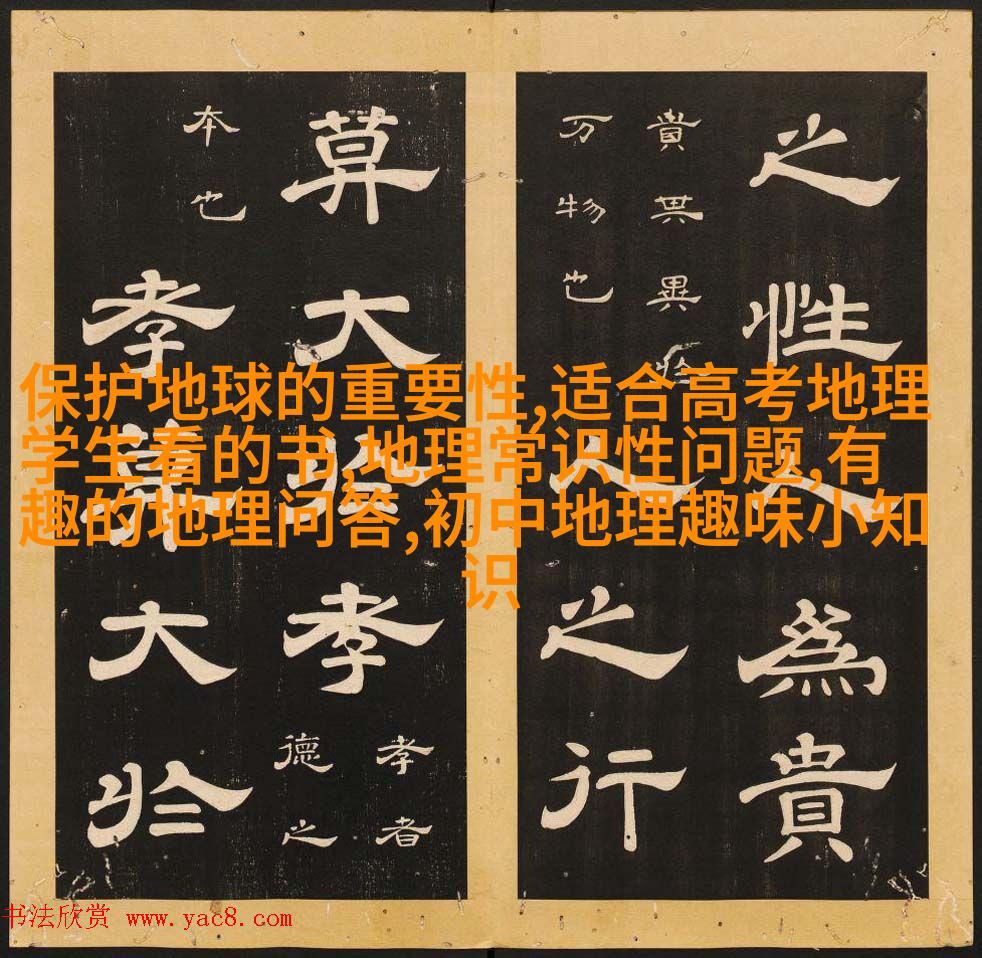 保护地球的重要性,适合高考地理
学生看的书,地理常识性问题,有
趣的地理问答,初中地理趣味小知
识
之性人為貴
貴其異於
万物也
人之行
莫大於孝
孝者
德之
本也
孝莫大於
书法欣赏 www.yac8.com